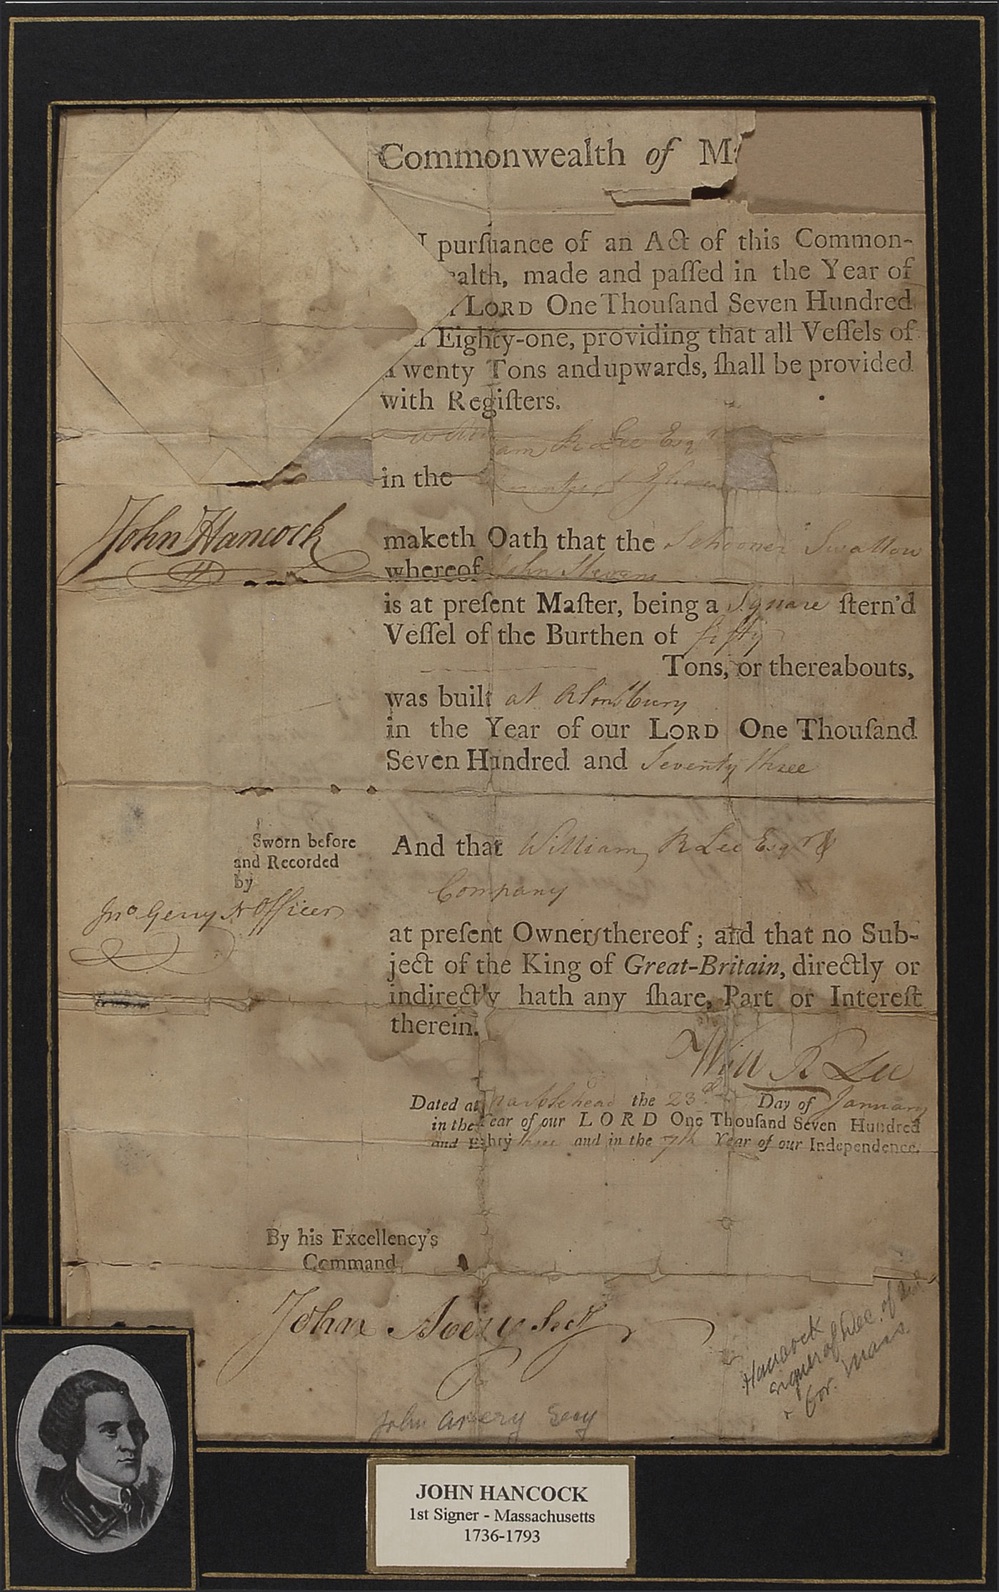 Commonwealth of M
purſuance of an Act of this Common-
alth, made and paſſed in the Year of
LORD One Thouſand Seven Hundred
Eighty-one, providing that all Veſſels of
Twenty Tons and upwards, ſhall be provided
with Regiſters.
William R Lee Esqr
in the
John Hancock
maketh Oath that the Schooner Swallow
whereof John Stevens
is at preſent Maſter, being a Square ſtern'd
Veſſel of the Burthen of fifty
Tons, or thereabouts,
was built at
in the Year of our LORD One Thouſand
Seven Hundred and Seventy three
Sworn before
and Recorded
by
Jno Gerry N Officer
And that William R Lee Esqr &
Company
at preſent Owners thereof; and that no Sub-
ject of the King of Great-Britain, directly or
indirectly hath any ſhare, Part or Intereſt
therein.
Will R Lee
Dated at Marblehead the 23d Day of January
in the Year of our LORD One Thouſand Seven Hundred
and Eighty three and in the 7th Year of our Independence.
By his Excellency's
Command
John Avery Secy
John Avery Secy
Hancock
signer of Dec. of Ind
+ Gov. Mass
JOHN HANCOCK
1st Signer - Massachusetts
1736-1793